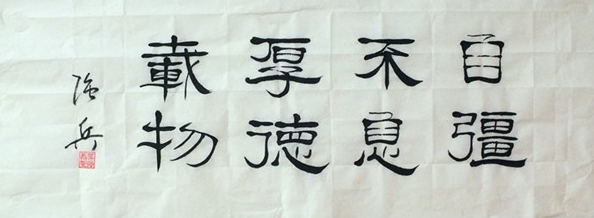 自彊
不息
厚德
載物
兵